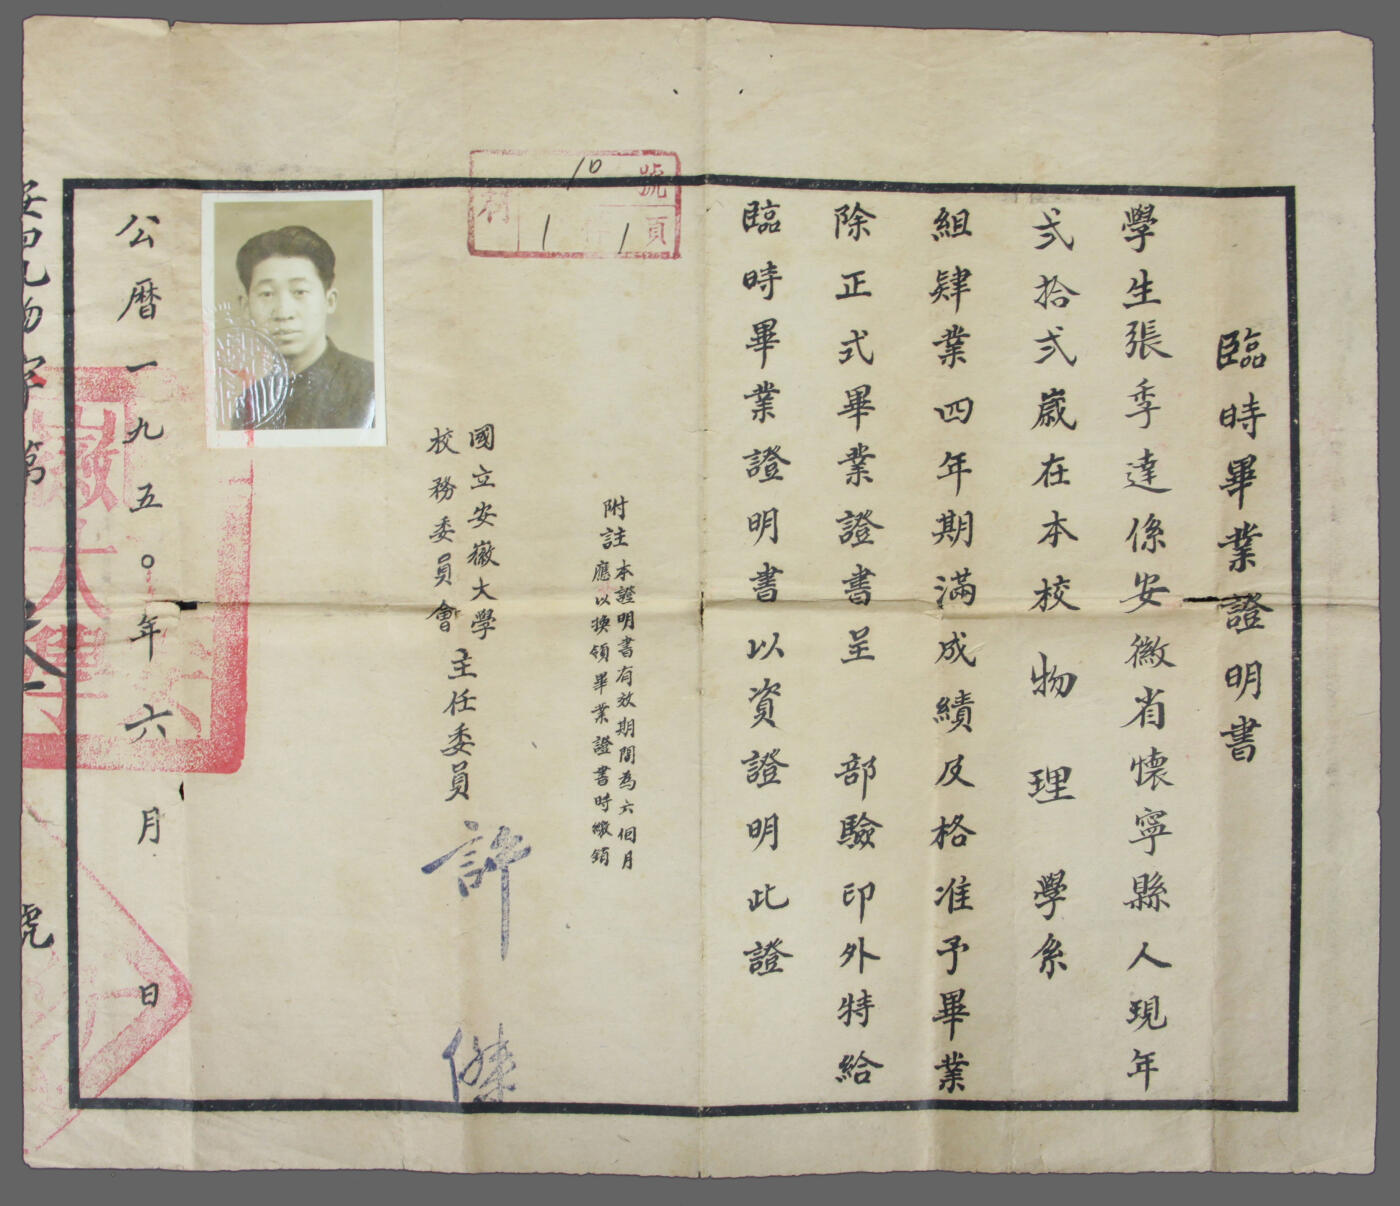 臨時畢業證明書
學生張季達係安徽省懷寧縣人現年
弍拾弍歲在本校物理學系
組肄業四年期滿成績及格准予畢業
除正式畢業證書呈部驗印外特給
臨時畢業證明書以資證明此證
號
頁
10
1
1
附註本證明書有效期間為六個月
應以換領畢業證書時繳銷
國立安徽大學
校務委員會
主任委員
許傑
公曆一九五〇年六月日
字第
號
徽大學